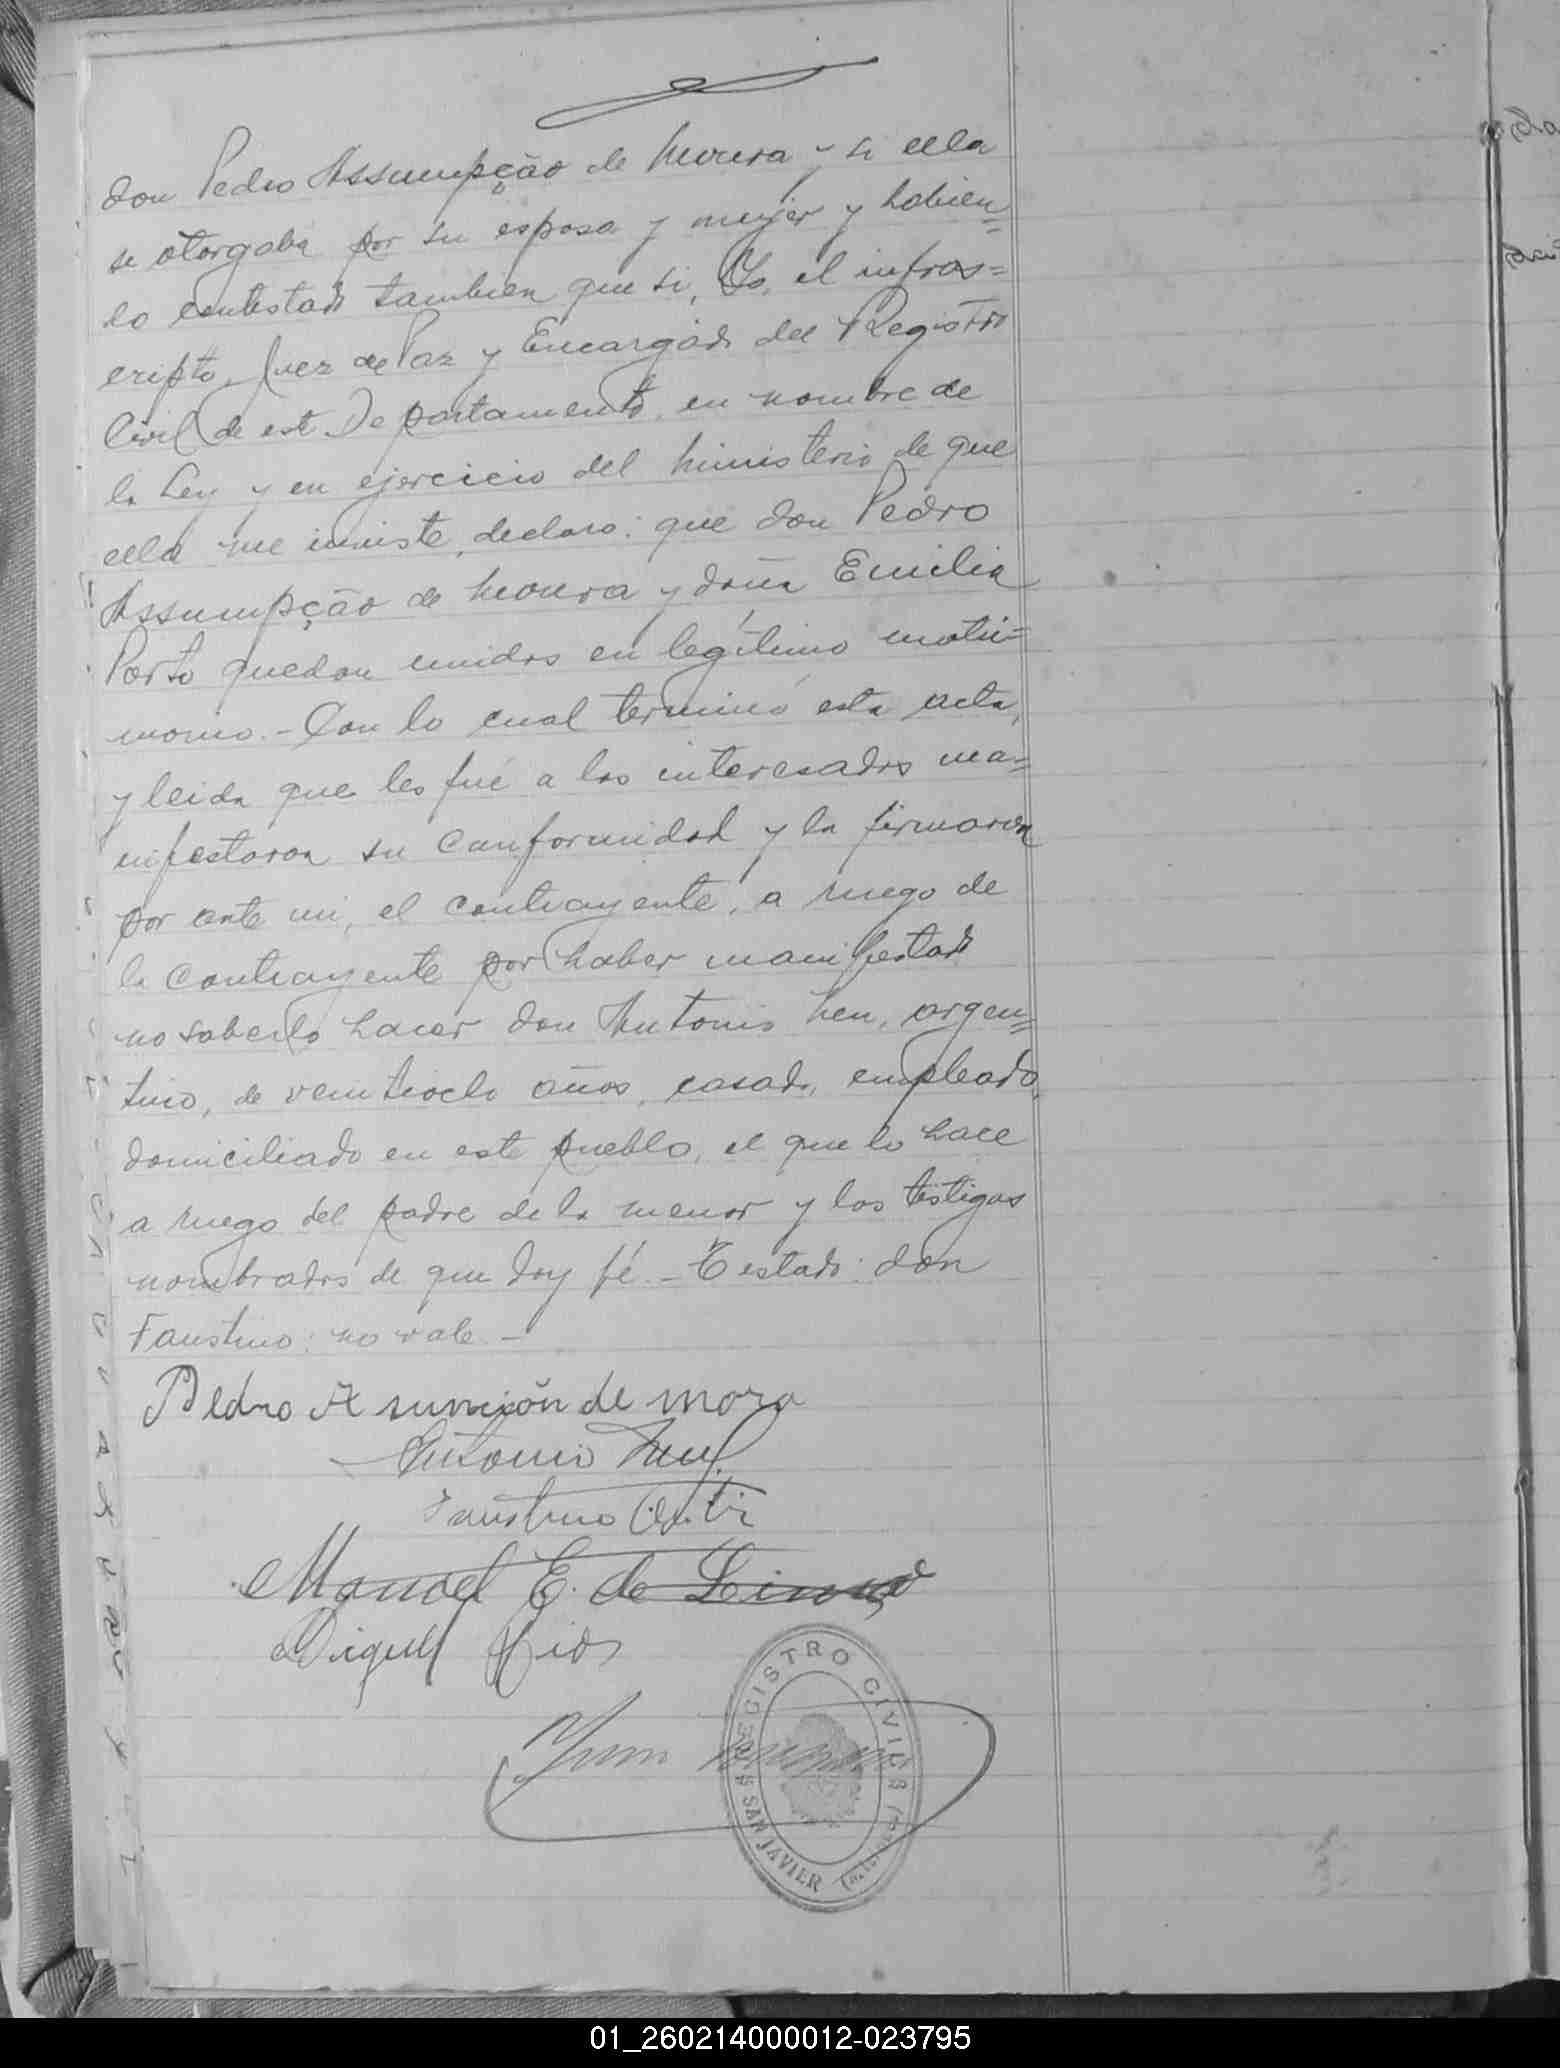 don Pedro Assumpção de Moura y si ella
se otorgaba por su esposa y mujer y habien=
do contestado tambien que si, Yo, el infras=
cripto, Juez de Paz y Encargado del Registro
Civil de este Departamento, en nombre de
la Ley y en ejercicio del Ministerio de que
ella me inviste, declaro: que don Pedro
Assumpção de Moura y doña Emilia
Porto quedan unidos en legítimo matri=
monio.- Con lo cual terminó esta acta,
y leida que les fué a los interesados ma=
nifestaron su conformidad y la firmaron
por ante mi, el contrayente, a ruego de
la contrayente por haber manifestado
no saberlo hacer don Antonio Neu, argen=
tino, de veintiocho años, casado, empleado,
domiciliado en este pueblo, el que lo hace
a ruego del padre de la menor y los testigos
nombrados de que doy fé.- Testado: don
Faustino: no vale.-
Pedro Asunción de mora
Antonio Neu
Faustino
Manoel E. de Lima
Miguel Rios
Juan
REGISTRO CIVIL
SAN JAVIER
01_260214000012-023795